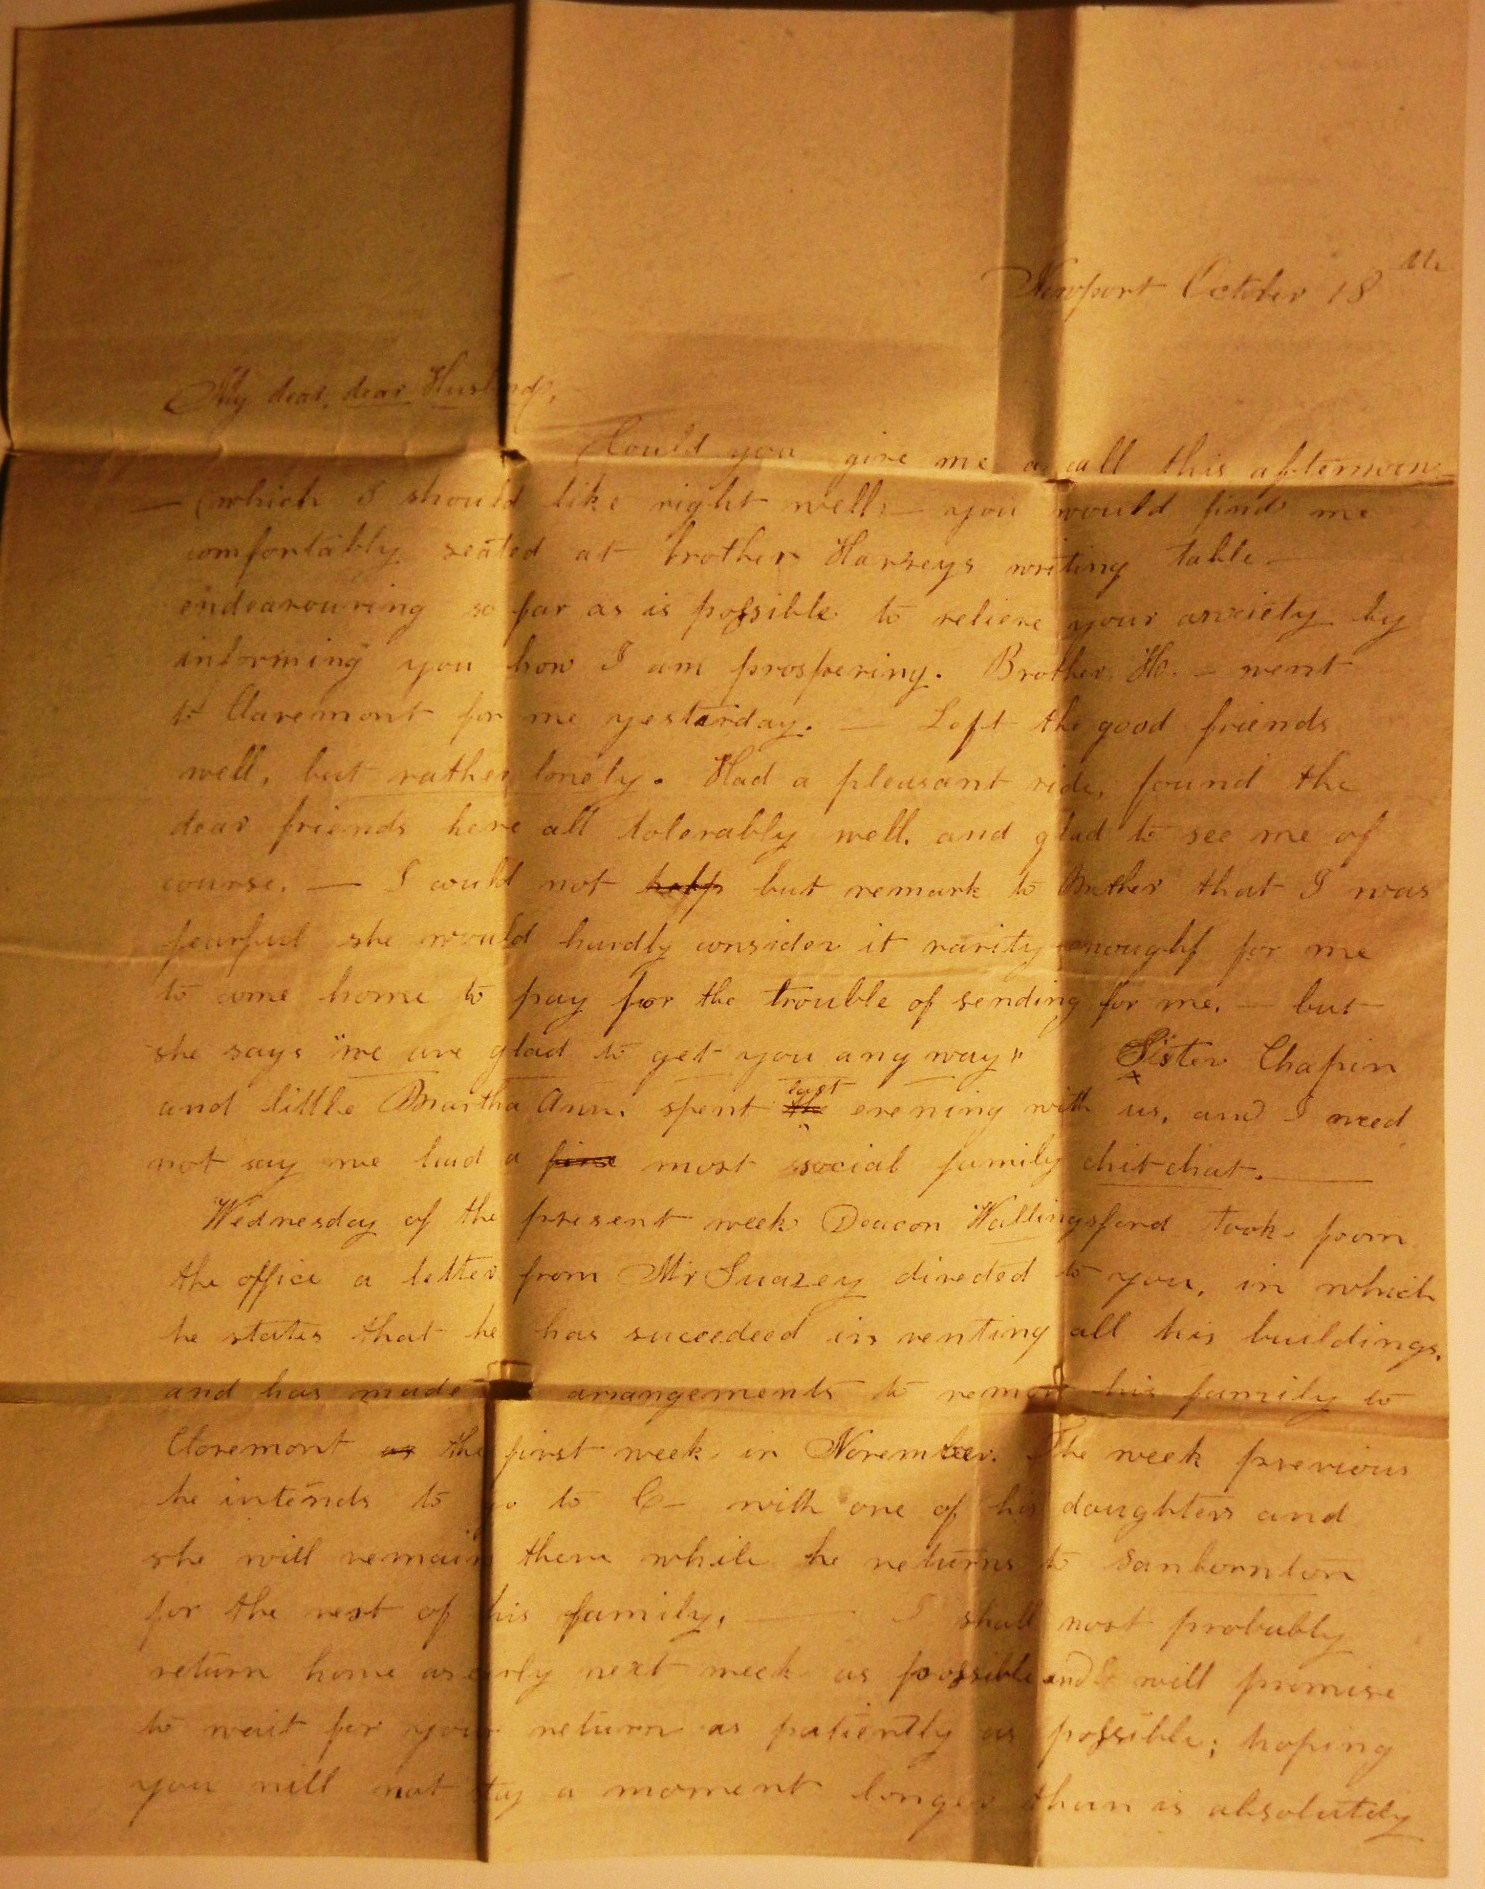 Newport October 18th
My dear, dear Husband,
Could you give me a call this afternoon
— (which I should like right well) — you would find me
comfortably seated at brother Harveys writing table —
endeavouring so far as is possible to relieve your anxiety by
informing you how I am prospering. Brother H. — went
to Claremont for me yesterday. — Left the good friends
well, but rather lonely. Had a pleasant ride, found the
dear friends here all tolerably well, and glad to see me of
course. — I could not help but remark to Mother that I was
fearful she would hardly consider it rarity enough for me
to come home to pay for the trouble of sending for me. — but
she says "we are glad to get you any way" Sister Chapin
and little Martha Ann. spent the last evening with us, and I need
not say we had a fine most social family chit chat. —
Wednesday of the present week Deacon Wallingsford took from
the office a letter from Mr directed to you, in which
he states that he has succeeded in renting all his buildings,
and has made arrangements to remove his family to
Claremont as the first week in November. The week previous
he intends to go to C— with one of his daughters and
she will remain there while he returns to Sanbornton
for the rest of his family. — I shall most probably
return home as early next week as possible and I will promise
to wait for your return as patiently as possible; hoping
you will not stay a moment longer than is absolutely